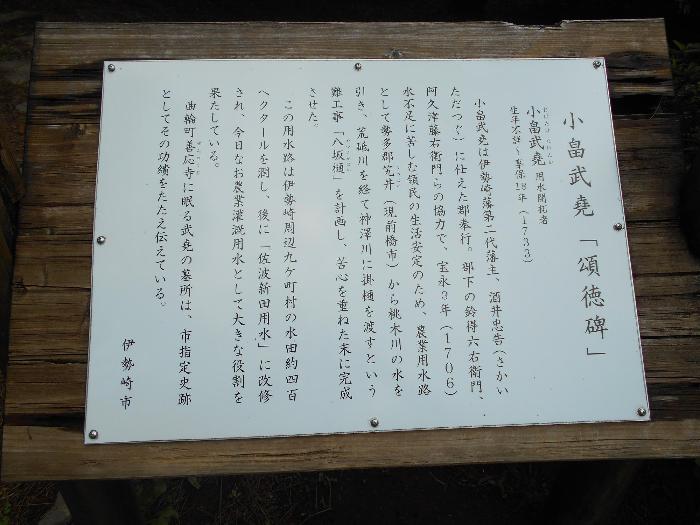 小畠武堯「頌徳碑」
小畠武堯 用水開拓者
生年不詳〜享保18年(1733)
小畠武堯は伊勢崎藩第二代藩主、酒井忠告(さかい
ただつぐ)に仕えた郡奉行。部下の鈴得六右衛門、
阿久津藤右衛門らの協力で、宝永3年(1706)
水不足に苦しむ領民の生活安定のため、農業用水路
として勢多郡筑井(現前橋市)から桃木川の水を
引き、荒砥川を経て神澤川に掛樋を渡すという
難工事「八坂樋」を計画し、苦心を重ねた末に完成
させた。
この用水路は伊勢崎周辺九ケ町村の水田約四百
ヘクタールを潤し、後に「佐波新田用水」に改修
され、今日なお農業灌漑用水として大きな役割を
果たしている。
曲輪町善応寺に眠る武堯の墓所は、市指定史跡
としてその功績をたたえ伝えている。
伊勢崎市